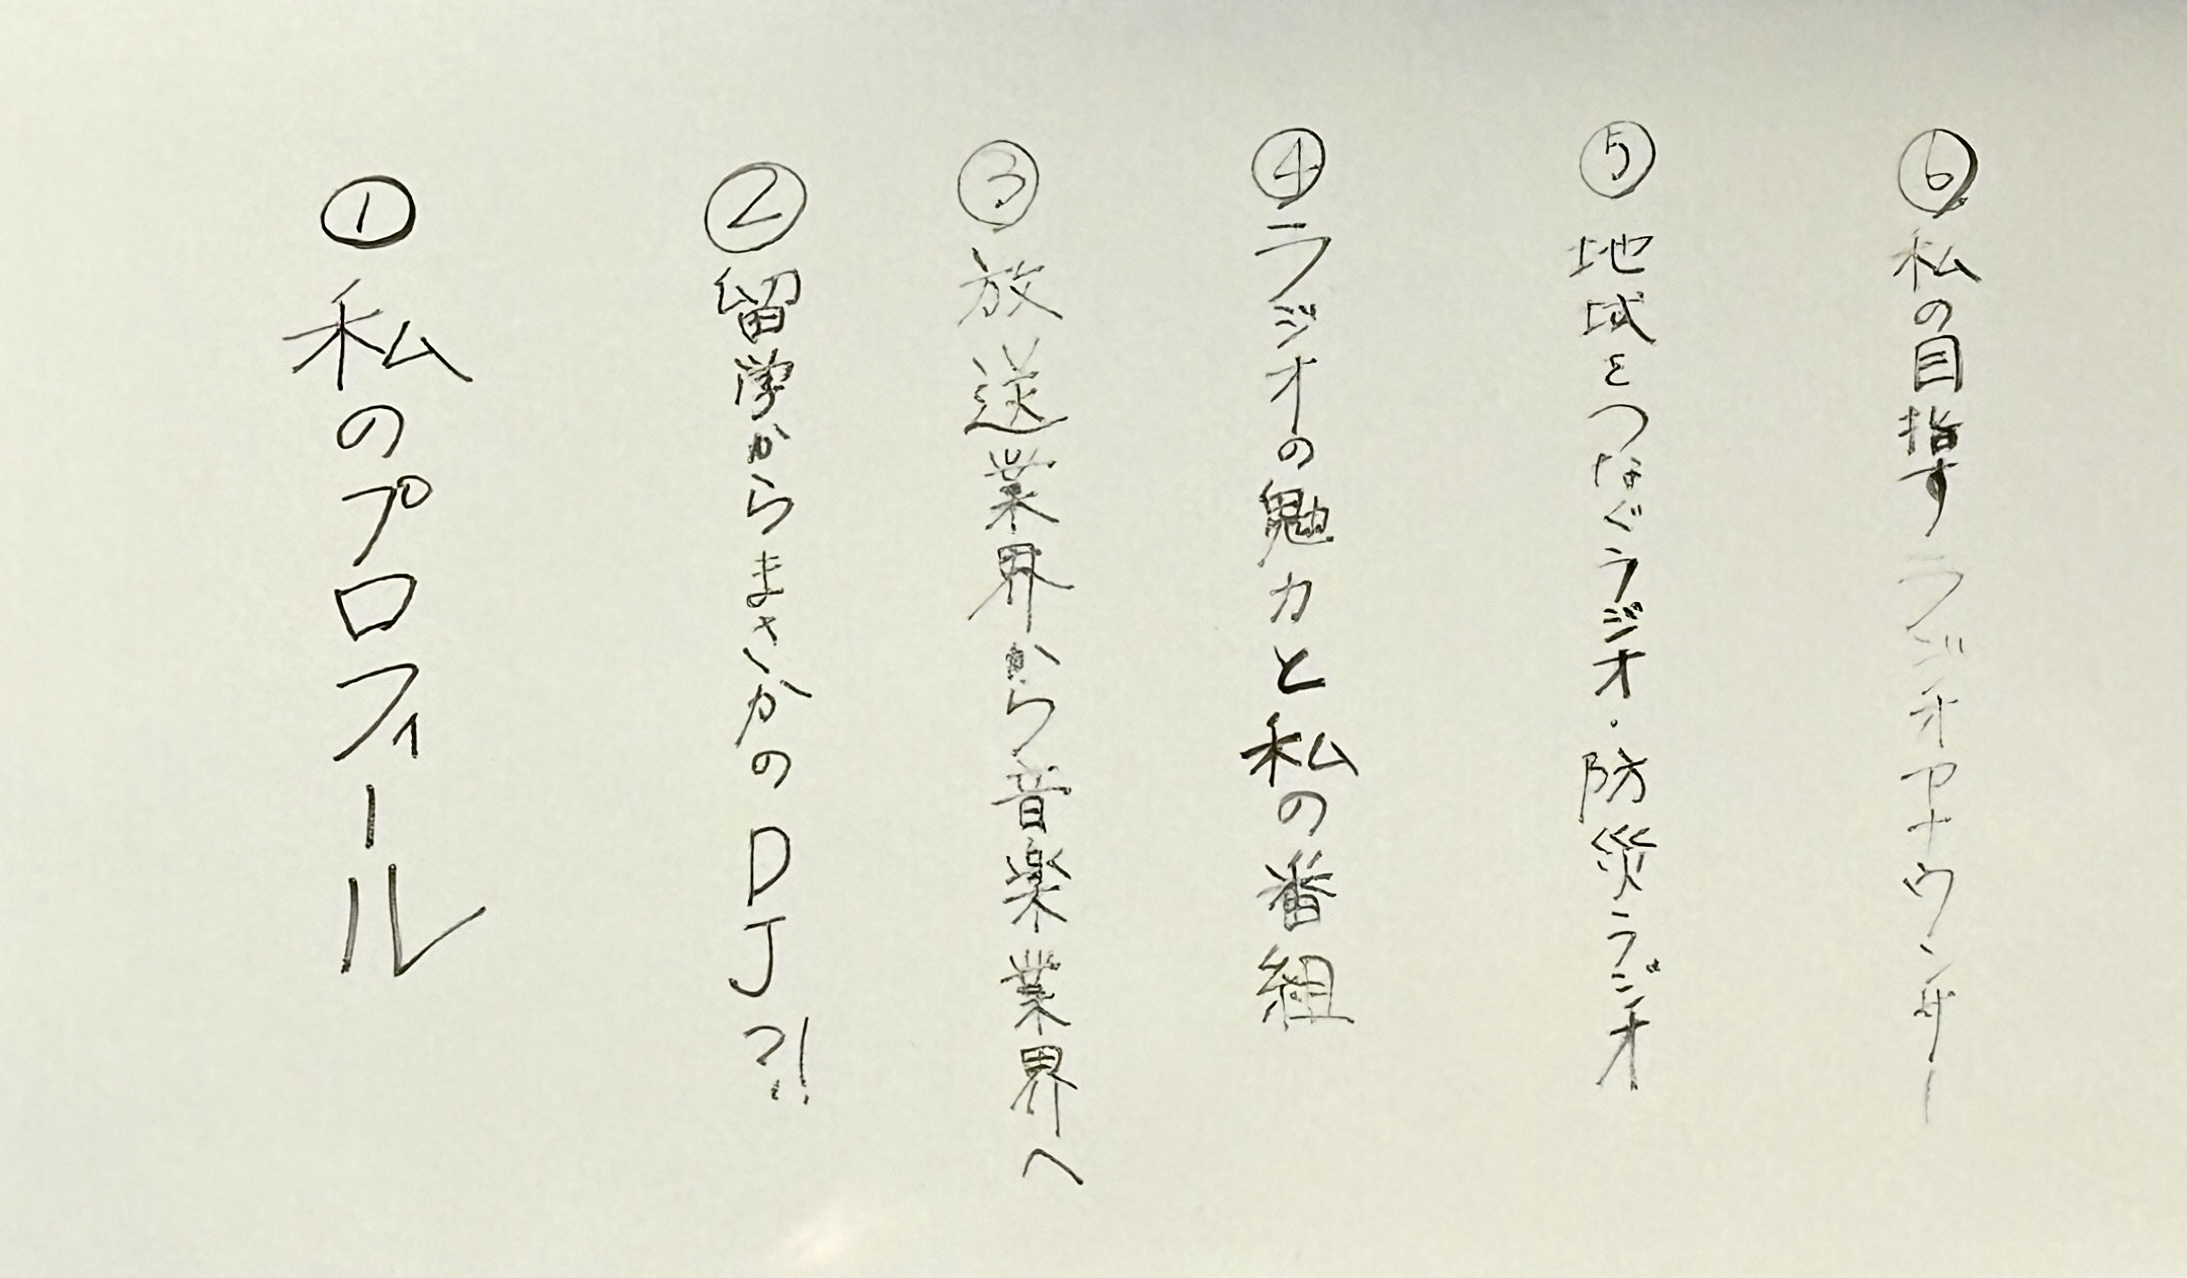 ① 私のプロフィール
② 留学からまさかのDJ?!
③ 放送業界から音楽業界へ
④ ラジオの魅力と私の番組
⑤ 地域をつなぐラジオ・防災ラジオ
⑥ 私の目指すラジオアナウンサー